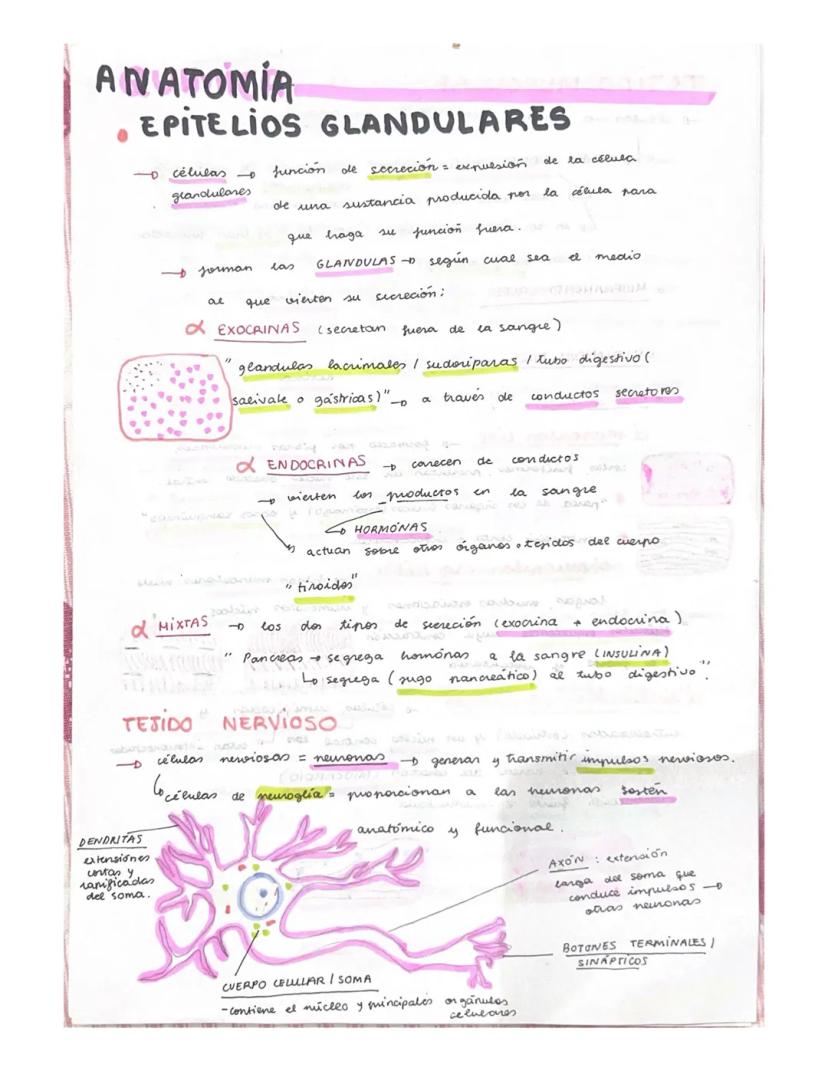 ANATOMÍA
. EPITELIOS GLANDULARES
→ células → función de secreción = expulsión de la célula
glandulares de una sustancia producida por la célula para
que haga su función fuera.
→ forman las GLANDULAS → según cual sea el medio
al que vierten su secreción:
α EXOCRINAS (secretan fuera de la sangre)
"glandulas lacrimales / sudoríparas / tubo digestivo (
salivale o gástricas)" → a través de conductos secretores
α ENDOCRINAS → carecen de conductos
→ vierten los productos en la sangre
↳ HORMONAS
actuan sobre otros órganos o tejidos del cuerpo
"tiroides"
α MIXTAS → los dos tipos de secreción (exocrina + endocrina)
" Pancreas → segrega hormonas a la sangre (INSULINA)
↳ segrega (jugo pancreático) al tubo digestivo".
TEJIDO NERVIOSO
→ células nerviosas = neuronas → generan y transmitir impulsos nerviosos.
↳ células de neuroglía = proporcionan a las neuronas sostén
anatómico y funcional.
DENDRITAS
extensiones
cortas y
ramificadas
del soma.
AXÓN : extensión
larga del soma que
conduce impulsos →
otras neuronas
BOTONES TERMINALES /
SINÁPTICOS
CUERPO CELULAR / SOMA
- contiene el núcleo y principales orgánulos
celulares